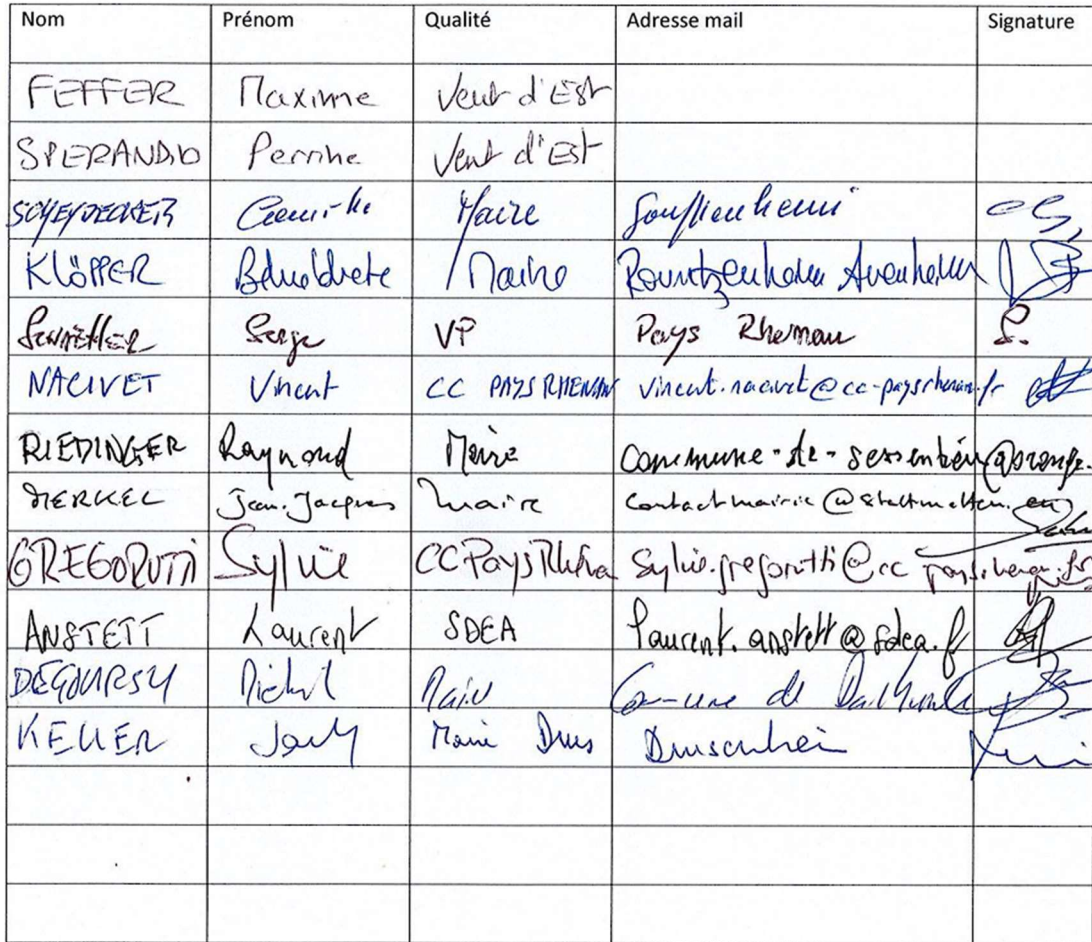 Nom Prénom Qualité Adresse mail Signature
FEFFER Maxime Vent d'Est
SPERANDIO Perrine Vent d'Est
SCHEYDECKER Camille Maire Soufflenheim
KLÖPPER Bénédicte Maire Rountzenheim Auenheim
Serge VP Pays Rhénan S.
NACIVET Vincent CC PAYS RHENAN vincent.nacivet@cc-paysrhenan.fr
RIEDINGER Raymond Maire commune-de-sessenheim@orange.
MERKEL Jean-Jacques Maire contactmairie@stattmatten.eu
GREGORUTTI Sylvie CC Pays Rhénan Sylvie.gregorutti@cc paysrhenan.fr
ANSTETT Laurent SDEA laurent.anstett@sdea.fr
DEGOURSY Michel Maire Commune de Dalhunden
KELLER Jacky Maire Drus Drusenheim